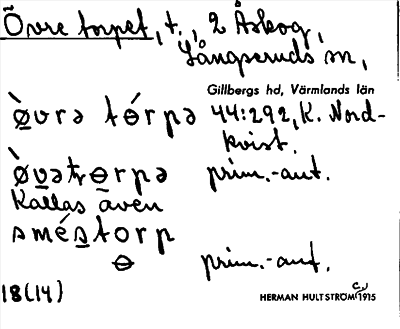 Övre torpet, t., 2 Åskog,
Långseruds sn,
Gillbergs hd, Värmlands län
ø̀vrə tórpə 44:292, K. Nord-
kvist.
ø̀vətrɵrpə prim.-ant.
Kallas även
sméstorp
ɵ prim.-ant.
18(14)
HERMAN HULTSTRÖM 1915